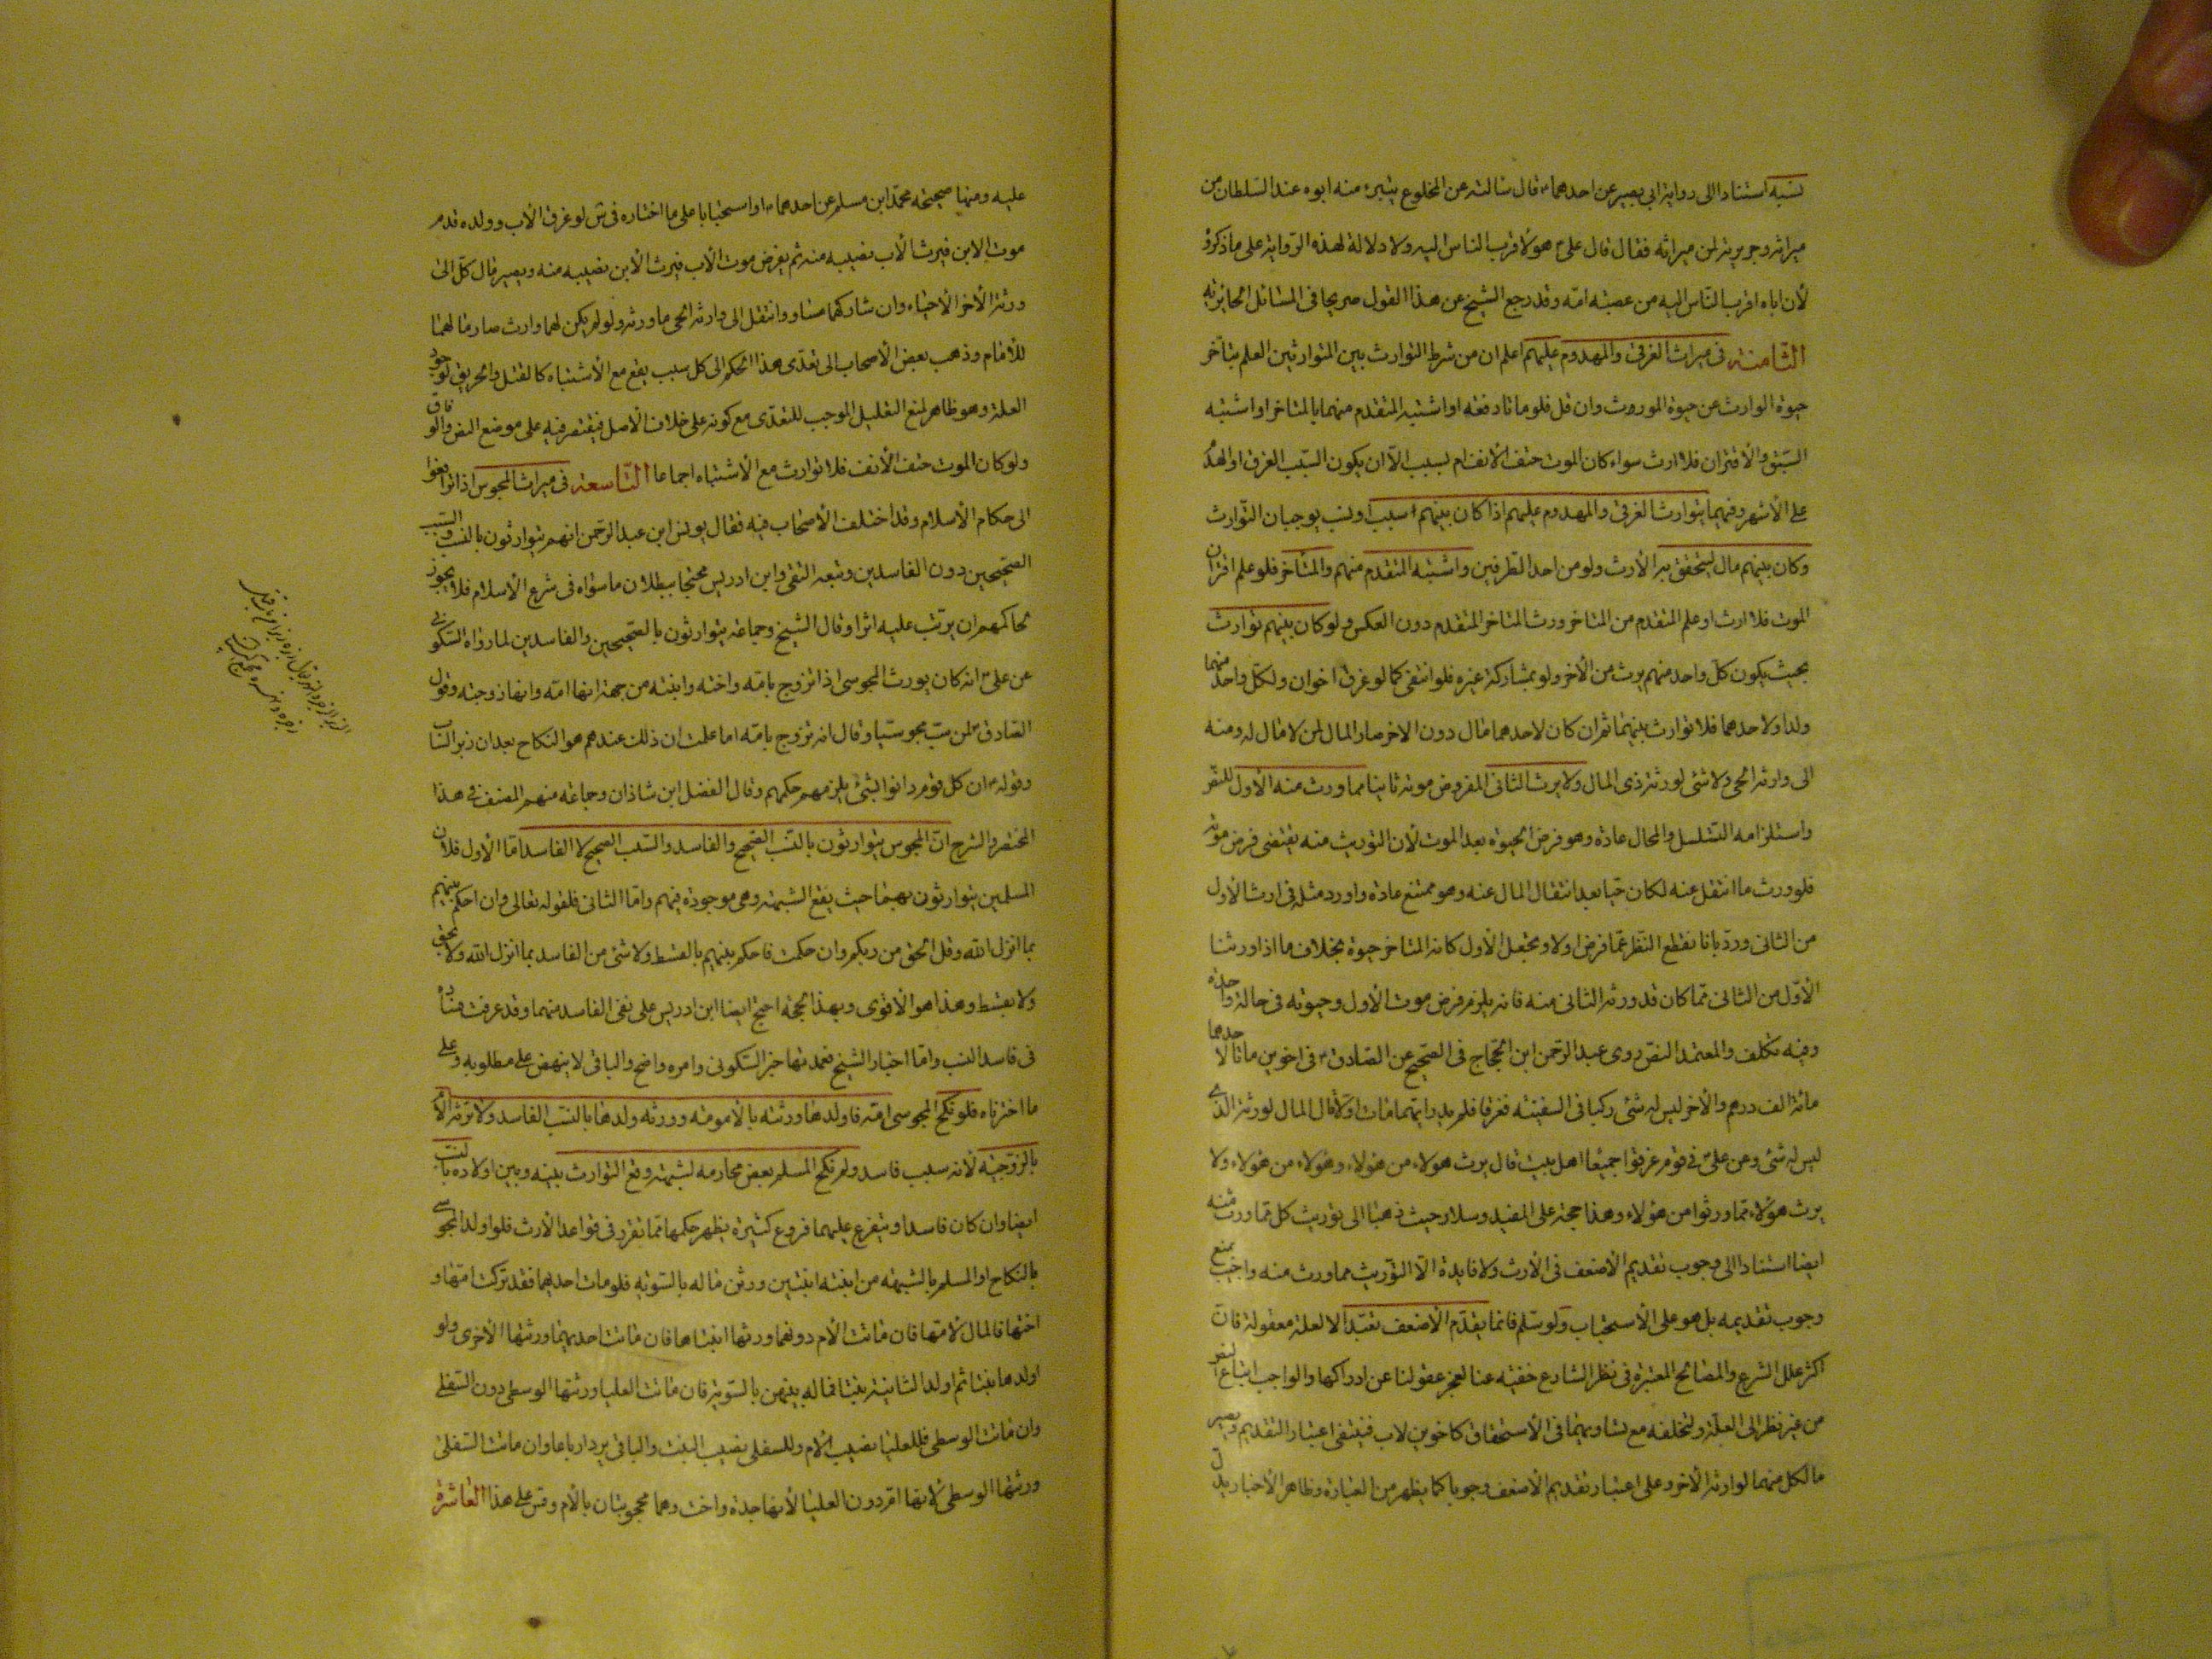 نسبه استنادا الى رواية ابي بصير عن احدهما ع قال سالته عن المخلوع يتبرئ منه ابوه عند السلطان من
ميراثه وجريرته لمن ميراثه فقال قال علي ع هو لاقرب الناس اليه ولا دلالة لهذه الرواية على ما ذكروه
لأن اباه اقرب الناس اليه من عصبة امه وقد رجع الشيخ عن هذا القول صريحا في المسائل الحائرية
الثامنة في ميراث الغرقى والمهدوم عليهم اعلم ان من شرط التوارث بين المتوارثين العلم بتأخر
حيوة الوارث عن حيوة الموروث وان قل فلو ماتا دفعة او اشتبه المتقدم منهما بالمتاخر او اشتبه
السبق والاقتران فلا ارث سواء كان الموت حتف الانف ام بسبب الا ان يكون السبب الغرق او الهدم
على الأشهر وفيهما يتوارث الغرقى والمهدوم عليهم اذا كان بينهم سبب او نسب يوجبان التوارث
وكان بينهم مال ليتحقق به الأرث ولو من احد الطرفين واشتبه المتقدم منهم والمتأخر فلو علم اقتران
الموت فلا ارث او علم المتقدم من المتاخر ورث المتاخر المتقدم دون العكس ولو كان بينهم توارث
بحيث يكون كل واحد منهم يرث من الأخر ولو بمشاركة غيره فلو انتفى كما لو غرق اخوان ولكل واحد منهما
ولد او لاحدهما فلا توارث بينهما ثم ان كان لاحدهما مال دون الاخر صار المال لمن لا مال له ومنه
الى وارثه الحي ولا شئ لورثة ذي المال ولا يرث الثاني المفروض موته ثانيا مما ورث منه الأول للنص
واستلزامه التسلسل والمحال عادة وهو فرض الحيوة بعد الموت لأن التوريث منه يقتضي فرض موته
فلو ورث ما انتقل عنه لكان حيا بعد انتقال المال عنه وهو ممتنع عادة واورد مثله في ارث الأول
من الثاني ورد بانا نقطع النظر عما فرض اولا ونجعل الأول كانه المتاخر حيوة بخلاف ما اذا ورثنا
الأول من الثاني مما كان قد ورثه الثاني منه فانه يلزم فرض موت الأول وحيوته في حالة واحدة
وفيه تكلف والمعتمد النص روى عبد الرحمن ابن الحجاج في الصحيح عن الصادق ع في اخوين ماتا لاحدهما
مائة الف درهم والأخر ليس له شئ ركبا في السفينة فغرقا فلم يدر ايهما مات اولا قال المال لورثة الذي
ليس له شئ وعن علي ع في قوم غرقوا جميعا اهل بيت قال يرث هولاء من هولاء وهولاء من هولاء ولا
يرث هولاء مما ورثوا من هولاء وهذا حجة على المفيد وسلار حيث ذهبا الى توريث كل مما ورث منه
ايضا استنادا الى وجوب تقديم الأضعف في الأرث ولا فايدة الا التوريث مما ورث منه واجيب بمنع
وجوب تقديمه بل هو على الأستحباب ولو سلم فانما يقدم الأضعف تعبدا لا لعلة معقولة فان
اكثر علل الشرع والمصالح المعتبرة في نظر الشارع خفية عنا لعجز عقولنا عن ادراكها والواجب اتباع النص
من غير نظر الى العلة ولتخلفه مع تساويهما في الأستحقاق كاخوين لاب فينتفى اعتبار التقديم ويصير
مال كل منهما لوارثه الأخر وعلى اعتبار تقديم الأضعف وجوبا كما يظهر من العبارة وظاهر الأخبار يدل
عليه ومنها صحيحة محمد ابن مسلم عن احدهما ع او استحبابا على ما اختاره في س لو غرق الأب وولده قدم
موت الابن فيرث الأب نصيبه منه ثم يفرض موت الأب فيرث الأبن نصيبه منه ويصير مال كل الى
ورثة الأخر الأحياء وان شاركهما مساو وانتقل الى وارثه الحي ما ورثه ولو لم يكن لهما وارث صار مالهما
للأمام وذهب بعض الأصحاب الى تعدي هذا الحكم الى كل سبب يقع مع الأشتباه كالقتل والحريق لوجود
العلة وهو ظاهر لمنع التعليل الموجب للتعدي مع كونه على خلاف الأصل فيقتصر فيه على موضع النص والوفاق
ولو كان الموت حتف الأنف فلا توارث مع الأشتباه اجماعا التاسعة في ميراث المجوس اذا ترافعوا
الى حكام الأسلام وقد اختلف الأصحاب فيه فقال يونس ابن عبد الرحمن انهم يتوارثون بالنسب والسبب
الصحيحين دون الفاسدين وتبعه التقي وابن ادريس محتجا ببطلان ما سواه في شرع الأسلام فلا يجوز
لحاكمهم ان يرتب عليه اثرا وقال الشيخ وجماعة يتوارثون بالصحيحين والفاسدين لما رواه السكوني
عن علي ع انه كان يورث المجوسى اذا تزوج بامه واخته وابنته من جهة انها امه وانها زوجته وقول
الصادق ع لمن سب مجوسيا وقال انه تزوج بامه اما علمت ان ذلك عندهم هو النكاح بعد ان زبر الساب
وقوله ع ان كل قوم دانوا بشئ يلزمهم حكمهم وقال الفضل ابن شاذان وجماعة منهم المصنف في هذا
المختصر والشرح ان المجوس يتوارثون بالنسب الصحيح والفاسد والسبب الصحيح لا الفاسد اما الأول فلان
المسلمين يتوارثون بهما حيث يقع الشبهة وهي موجودة فيهم واما الثاني فلقوله تعالى وان احكم بينهم
بما انزل الله وقل الحق من ربكم وان حكمت فاحكم بينهم بالقسط ولا شئ من الفاسد بما انزل الله ولا بحق
ولا بقسط وهذا هو الأقوى وبهذا الحجة احتج ايضا ابن ادريس على نفي الفاسد منهما وقد عرفت فساده
في فاسد النسب واما اخبار الشيخ فعمدتها خبر السكوني وامره واضح والباقي لا ينهض على مطلوبه وعلى
ما اخترناه فلو نكح المجوسى امه فاولدها ورثته بالأمومة وورثه ولدها بالنسب الفاسد ولا ترثه الأم
بالزوجية لأنه سبب فاسد ولو نكح المسلم بعض محارمه لشبهة وقع التوارث بينه وبين اولاده بالنسب
ايضا وان كان فاسدا ويتفرع عليهما فروع كثيرة يظهر حكمها مما تقرر في قواعد الأرث فلو اولد المجوسي
بالنكاح او المسلم بالشبهة من ابنته ابنتين ورثن ماله بالسوية فلو ماتت احديهما فقد تركت امها و
اختها فالمال لأمها فان ماتت الأم دونهما ورثها ابنتاها فان ماتت احديهما ورثتها الأخرى ولو
اولدها بنتا ثم اولد الثانية بنتا فماله بينهن بالسوية فان ماتت العليا ورثتها الوسطى دون السفلى
وان ماتت الوسطى فللعليا نصيب الام وللسفلى نصيب البنت والباقي يرد ارباعا وان ماتت السفلى
ورثتها الوسطى لانها ام دون العليا لأنها جدة واخت وهما محجوبتان بالأم وقس على هذا العاشرة